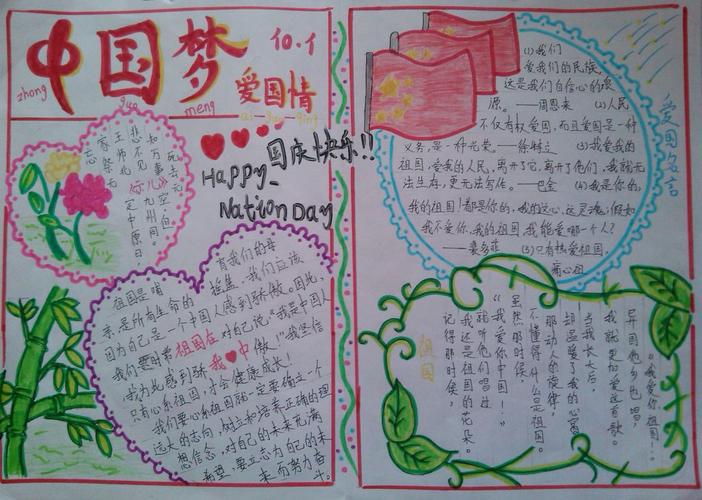 中国梦
10.1
zhong guo meng
爱国情
ai guo qing
国庆快乐!!
Happy
Nation Day
死去元
知万事空但
悲不见《示儿》九州同。
王师北定中原日，
家祭无
忘
祖国是哺育我们的母
亲,是所有生命的摇篮,我们应该
因为自己是一个中国人感到骄傲。因此,
我们要时常祖国在对自己说:“我是中国人
我为此感到骄我❤中傲!”我坚信
只有心系祖国,才会健康成长!
我们要心系祖国就一定要确立一个
远大的志向,树立和培养正确的理
想信念,对自己的未来充满
希望,要立志为自己的未
来而努力奋
斗。
爱国名言
(1)我们
爱我们的民族,
这是我们自信心的泉
源。——周恩来 (2)人民
不仅有权爱国,而且爱国是一种
义务,是一种光荣。——徐特立 (3)我爱我的
祖国,爱我的人民,离开了它,离开了他们,我就无
法生存,更无法写作。——巴金 (4)我是你的,
我的祖国!都是你的,我的这心,这灵魂;假如
我不爱你,我的祖国,我能爱哪一个人?
——裴多菲 (5)只有热爱祖国,
痛心祖
“我爱你祖国!”
异国他乡也唱,
我就更加爱这首歌。
当我长大后,
却温暖了我的心窝
那动人的旋律,
不懂得什么是祖国。
虽然那时候,
“我爱你中国!”
就听他们唱过
我这是祖国的花朵。
记得那时候,
祖国